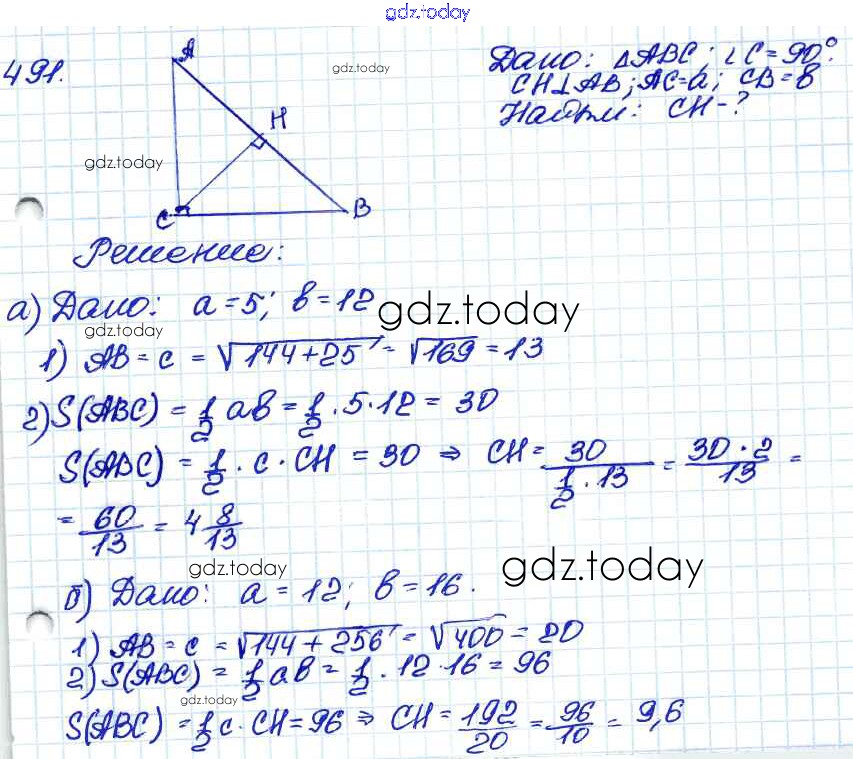 gdz.today
491.
A
gdz.today
Дано: △ABC; ∠C=90°.
CH⊥AB; AC=a; CB=b
Найти: CH-?
H
gdz.today
C
B
Решение:
а) Дано: a=5; b=12
gdz.today
gdz.today
1) AB = c = √144+25 = √169 = 13
2) S(ABC) = 1/2 ab = 1/2 · 5 · 12 = 30
S(ABC) = 1/2 · c · CH = 30 ⇒ CH = 30/(1/2 · 13) = 30 · 2/13 =
= 60/13 = 4 8/13
gdz.today
gdz.today
б) Дано: a = 12; b = 16.
1) AB = c = √144 + 256 = √400 = 20
2) S(ABC) = 1/2 ab = 1/2 · 12 · 16 = 96
gdz.today
S(ABC) = 1/2 c · CH = 96 ⇒ CH = 192/20 = 96/10 = 9,6